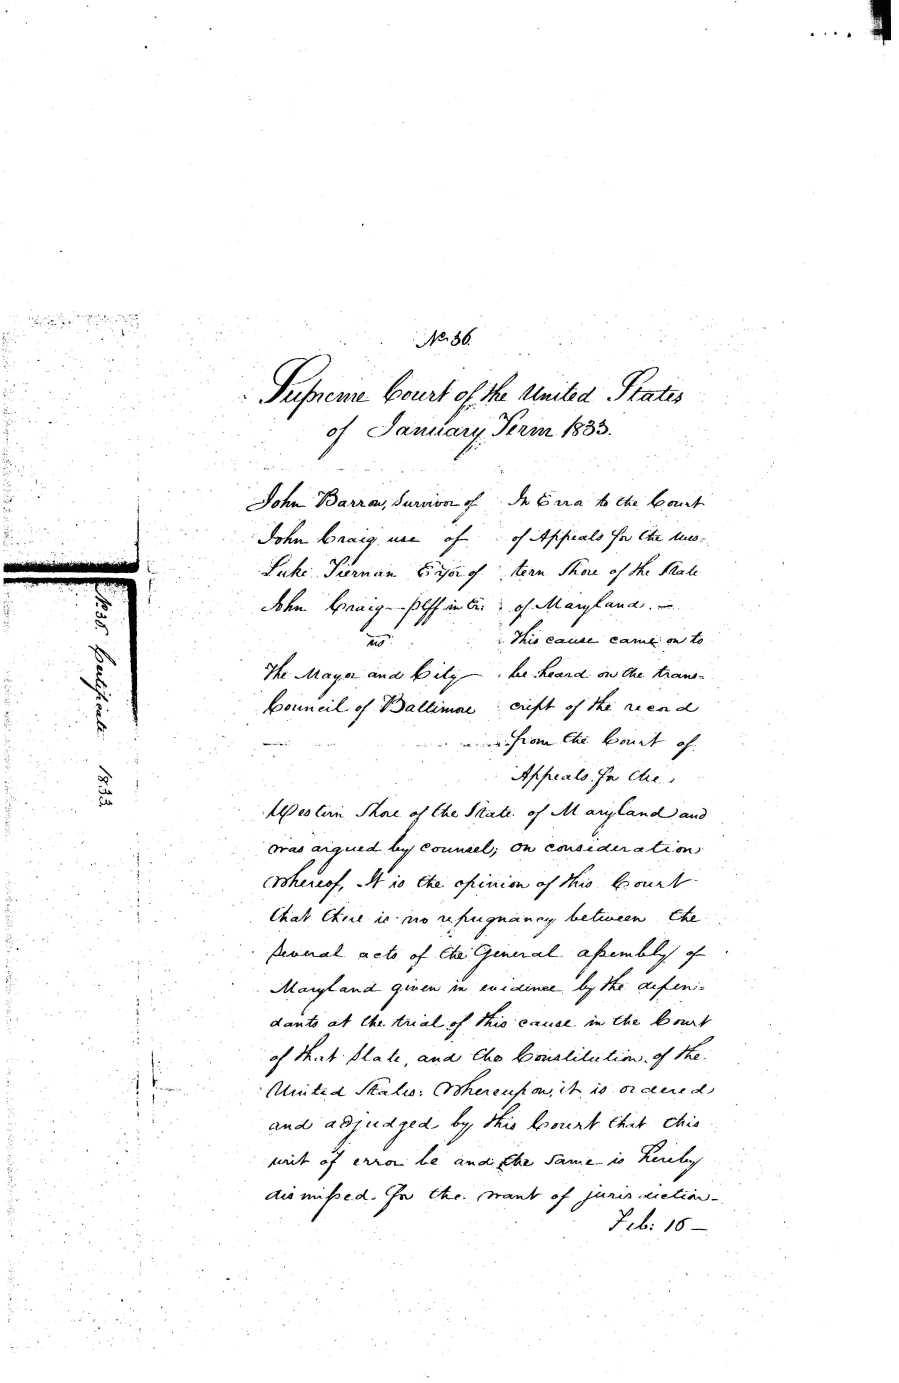 No. 36.
Supreme Court of the United States
of January Term 1833.
John Barron, Survivor of
John Craig use of
Luke Tiernan Exor of
John Craig plff in Er:
vs
The Mayor and City
Council of Baltimore
In Error to the Court
of Appeals for the Wes-
tern Shore of the State
of Maryland. —
This cause came on to
be heard on the trans-
cript of the record
from the Court of
Appeals for the
Western Shore of the State of Maryland and
was argued by counsel; on consideration
whereof, It is the opinion of this Court
that there is no repugnancy between the
several acts of the General assembly of
Maryland given in evidence by the defen-
dants at the trial of this cause in the Court
of that State, and the Constitution of the
United States: Whereupon, it is ordered
and adjudged by this Court that this
writ of error be and the same is hereby
dismissed for the want of jurisdiction —
Feb: 16 —
No. 36. Certificate 1833